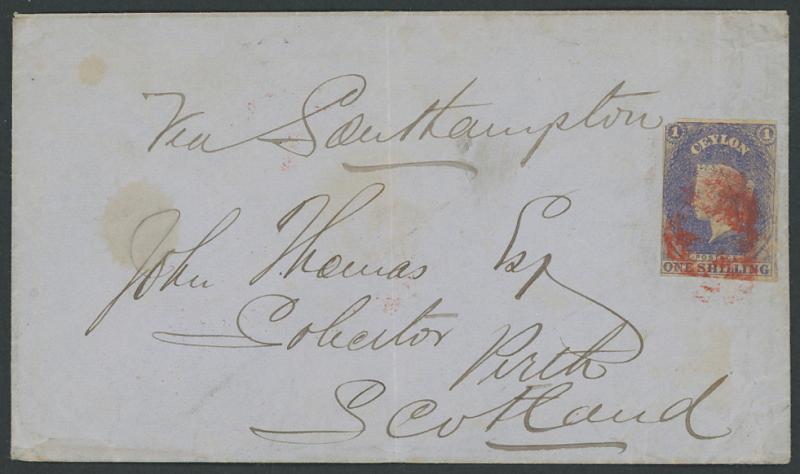 Via Southampton
1 1
CEYLON
POSTAGE
ONE SHILLING
John Thomas Esq
Solicitor
Perth
Scotland